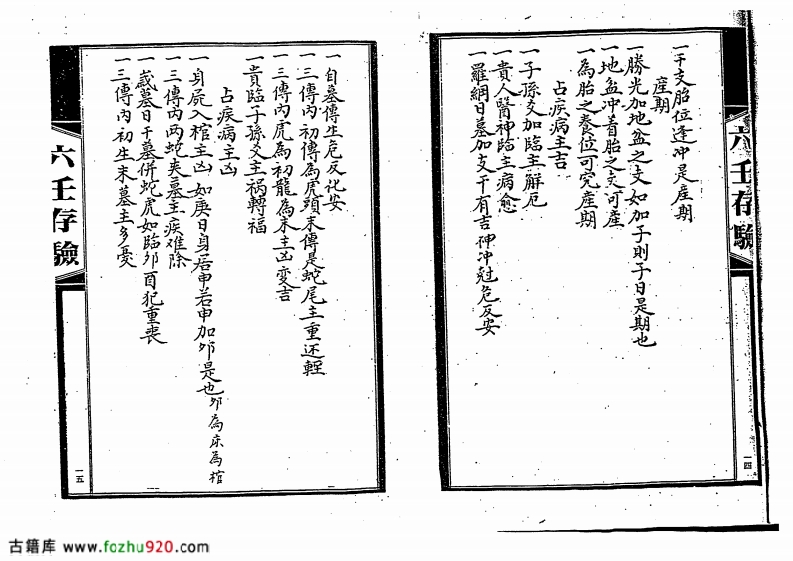 六壬存驗
一干支胎位逢冲是産期
産期
一勝光加地盆之支如加子則子日是期也
一地盆冲着胎之支可産
一為胎之養位可究産期
占疾病主吉
一子孫爻加臨主解厄
一貴人醫神臨主病愈
一羅網日墓加支干有吉神冲尅危反安
一四
一自墓傳生危反化安
一三傳內初傳為虎頭末傳是蛇尾主重还輕
一三傳內虎為初龍為末主凶变吉
一貴臨子孫爻主祸轉福
占疾病主凶
一身屍入棺主凶如庚日身居申若申加夘是也夘為床為棺
一三傳內两蛇夹墓主疾难除
一歲墓日干墓併蛇虎如臨夘酉犯重喪
一三傳內初生末墓主多憂
六壬存驗
一五
古籍库 www.fozhu920.com